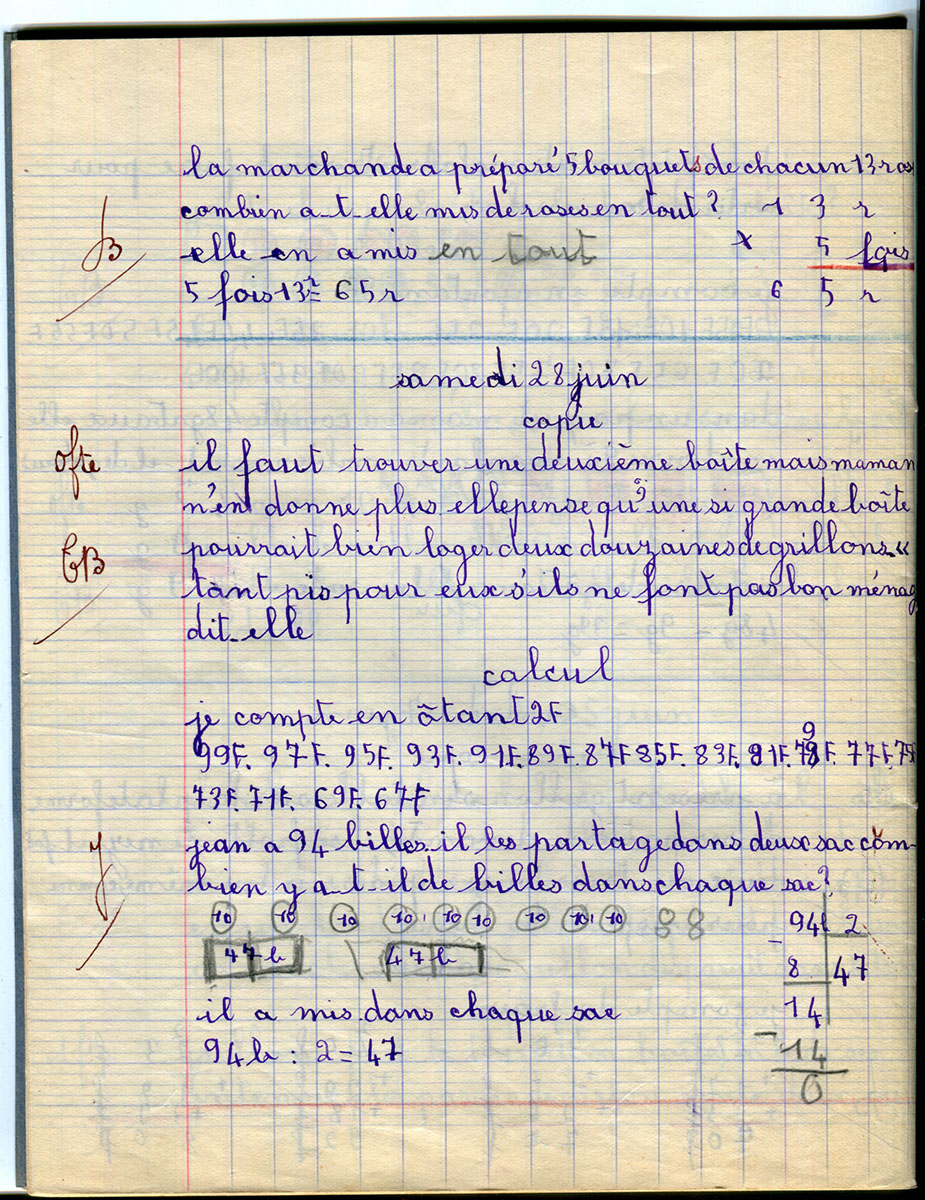 la marchande a préparé 5 bouquets de chacun 13 ros
combien a-t-elle mis de roses en tout ? 1 3 r
B elle en a mis en tout x 5 fois
5 fois 13r = 65r 6 5 r
samedi 28 juin
copie
il faut trouver une deuxième boîte mais maman
n'en donne plus elle pense qu'une si grande boîte
TB pourrait bien loger deux douzaines de grillons. «
tant pis pour eux s'ils ne font pas bon ménag
dit-elle
calcul
je compte en ôtant 2F
99F. 97F. 95F. 93F. 91F. 89F. 87F 85F. 83F. 81F. 79F. 77F. 75
73F. 71F. 69F. 67F
jean a 94 billes il les partage dans deux sac com-
bien y a-t-il de billes dans chaque sac?
10 10 10 10 10 10 10 10 10 94b 2
47b 47b - 8 47
il a mis dans chaque sac 14
94b : 2 = 47 - 14
0